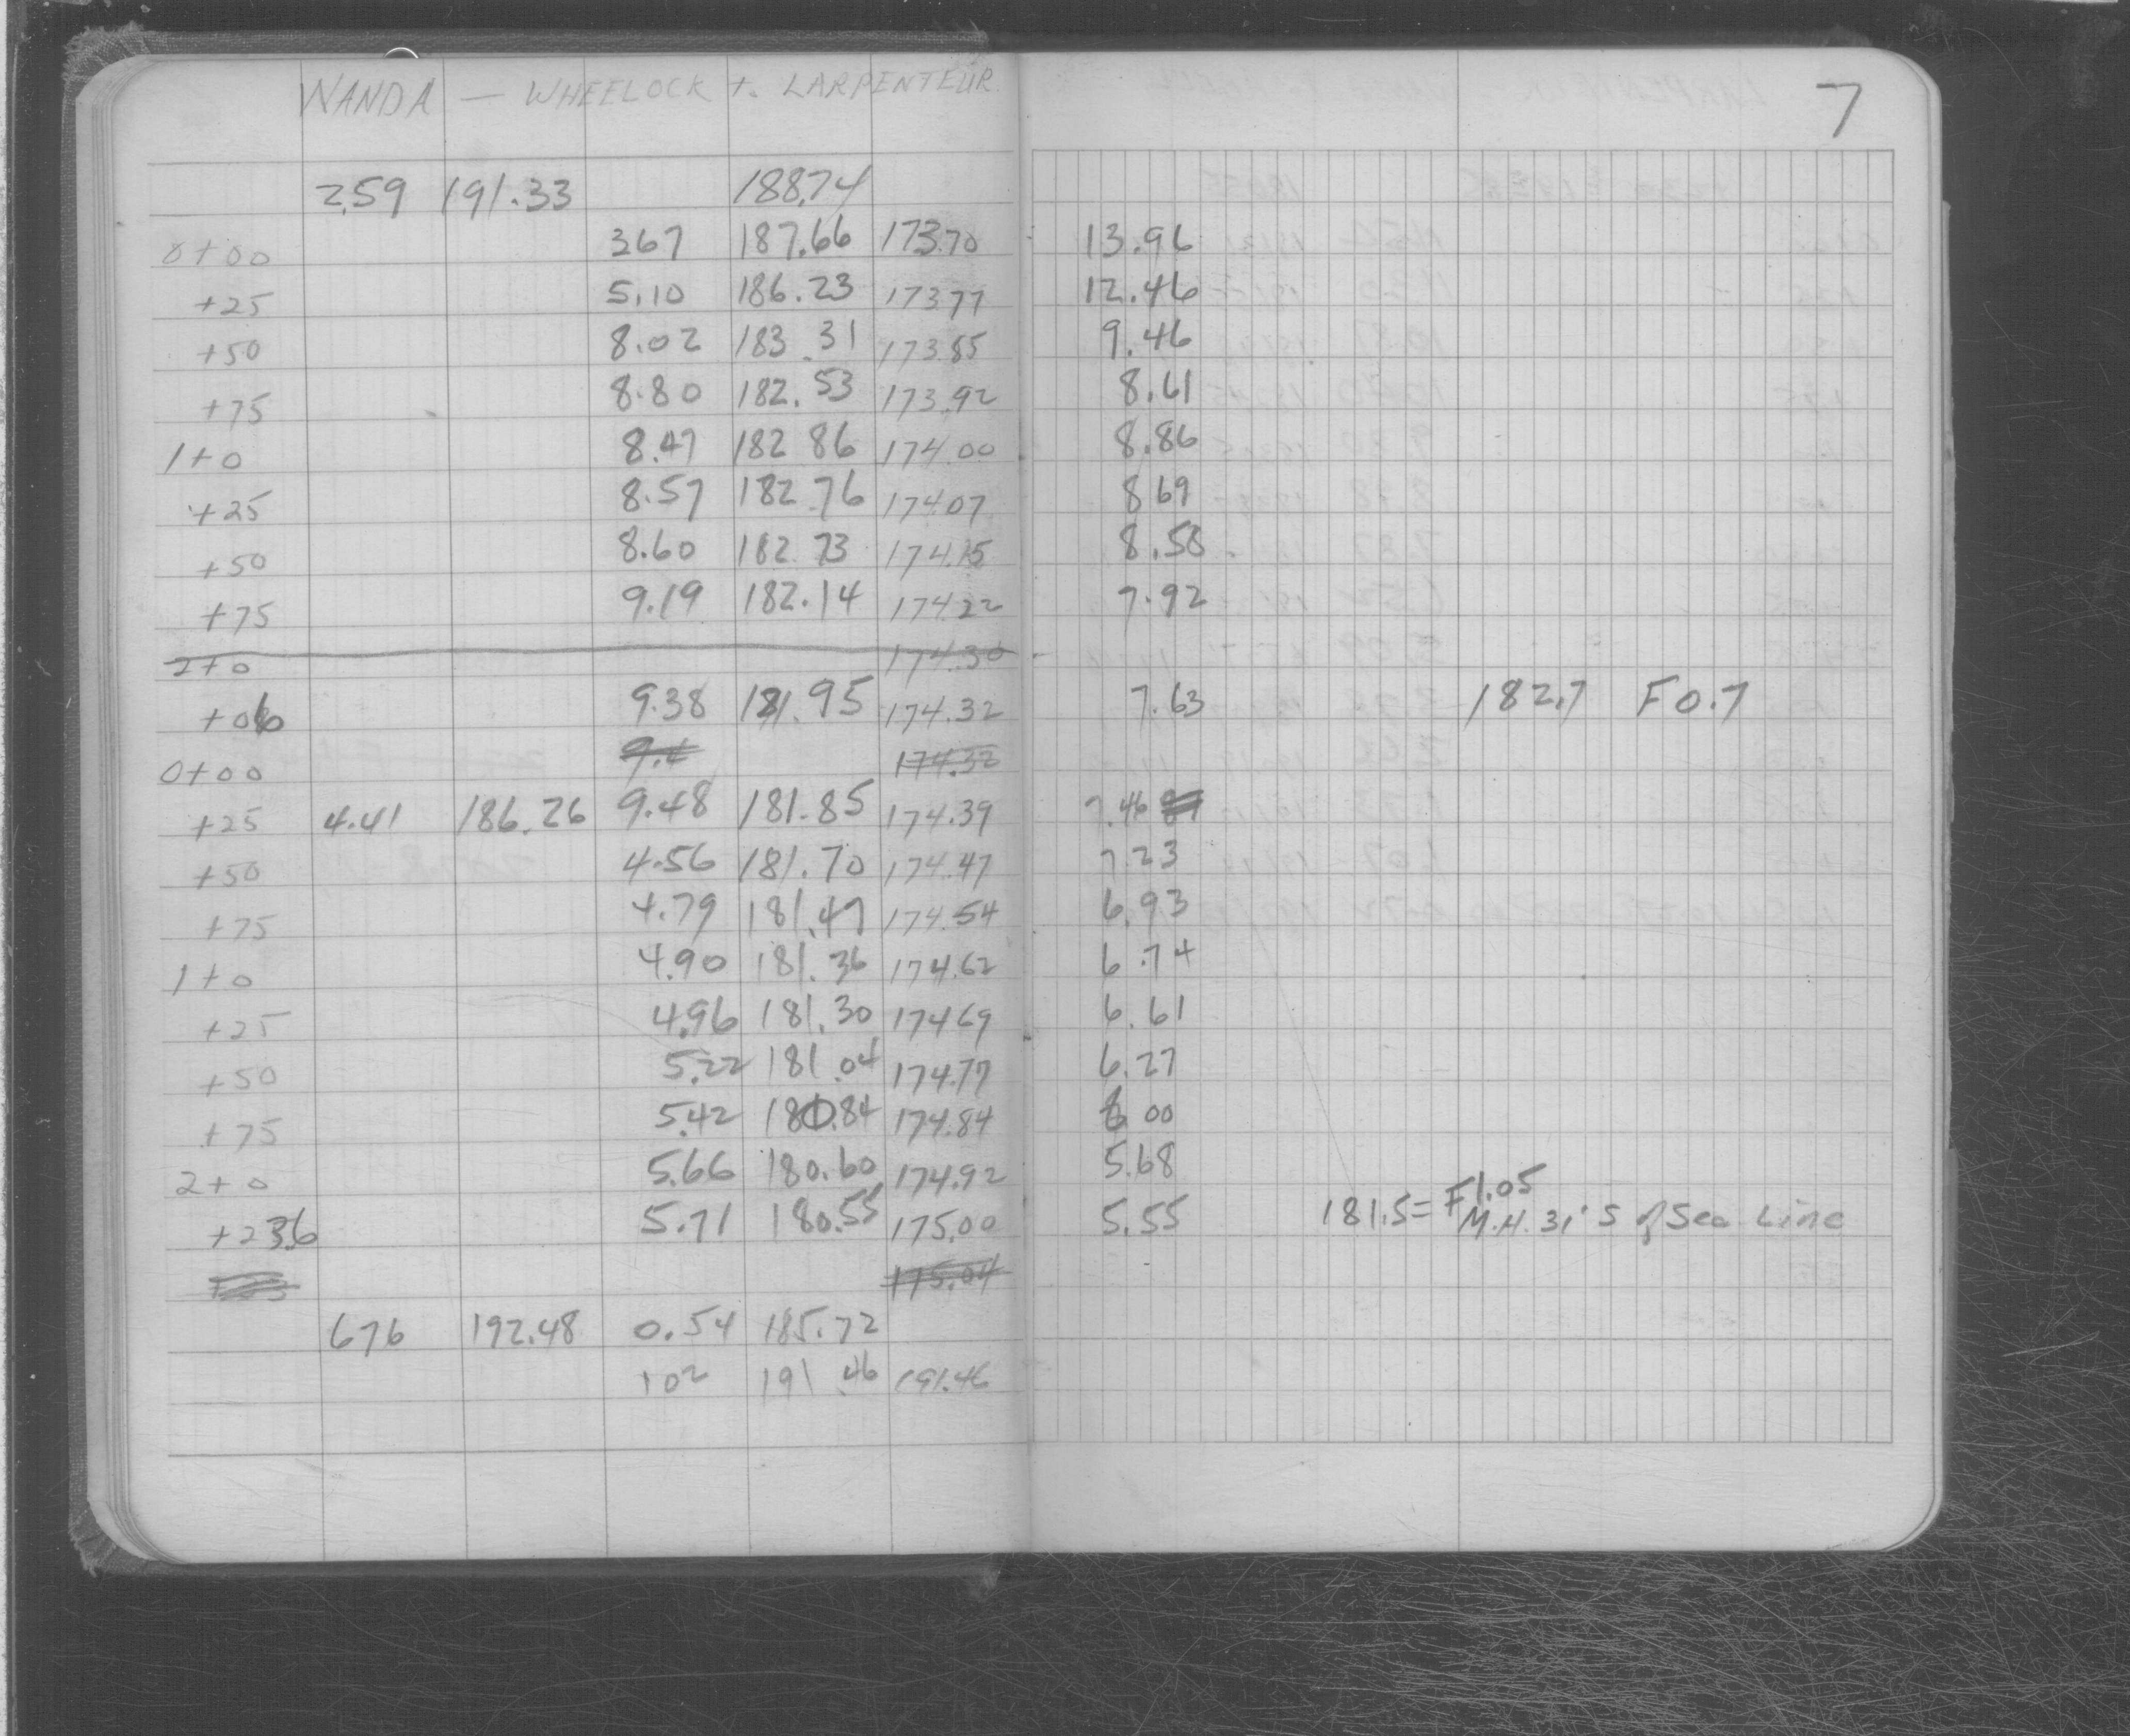 WANDA — WHEELOCK + LARPENTEUR 7
2.59 191.33 188.74
0+00 3.67 187.66 173.70 13.96
+25 5.10 186.23 173.77 12.46
+50 8.02 183.31 173.85 9.46
+75 8.80 182.53 173.92 8.61
1+0 8.47 182.86 174.00 8.86
+25 8.57 182.76 174.07 8.69
+50 8.60 182.73 174.15 8.58
+75 9.19 182.14 174.22 7.92
2+0 174.30
+06 9.38 181.95 174.32 7.63 182.7 F0.7
0+00 9.4 174.32
+25 4.41 186.26 9.48 181.85 174.39 7.46
+50 4.56 181.70 174.47 7.23
+75 4.79 181.47 174.54 6.93
1+0 4.90 181.36 174.62 6.74
+25 4.96 181.30 174.69 6.61
+50 5.22 181.04 174.77 6.27
+75 5.42 180.84 174.84 6.00
2+0 5.66 180.60 174.92 5.68
+236 5.71 180.55 175.00 5.55 181.5 = F1.05
M.H. 31' S of Sec Line
175.04
676 192.48 0.54 185.72
102 191.46 191.46